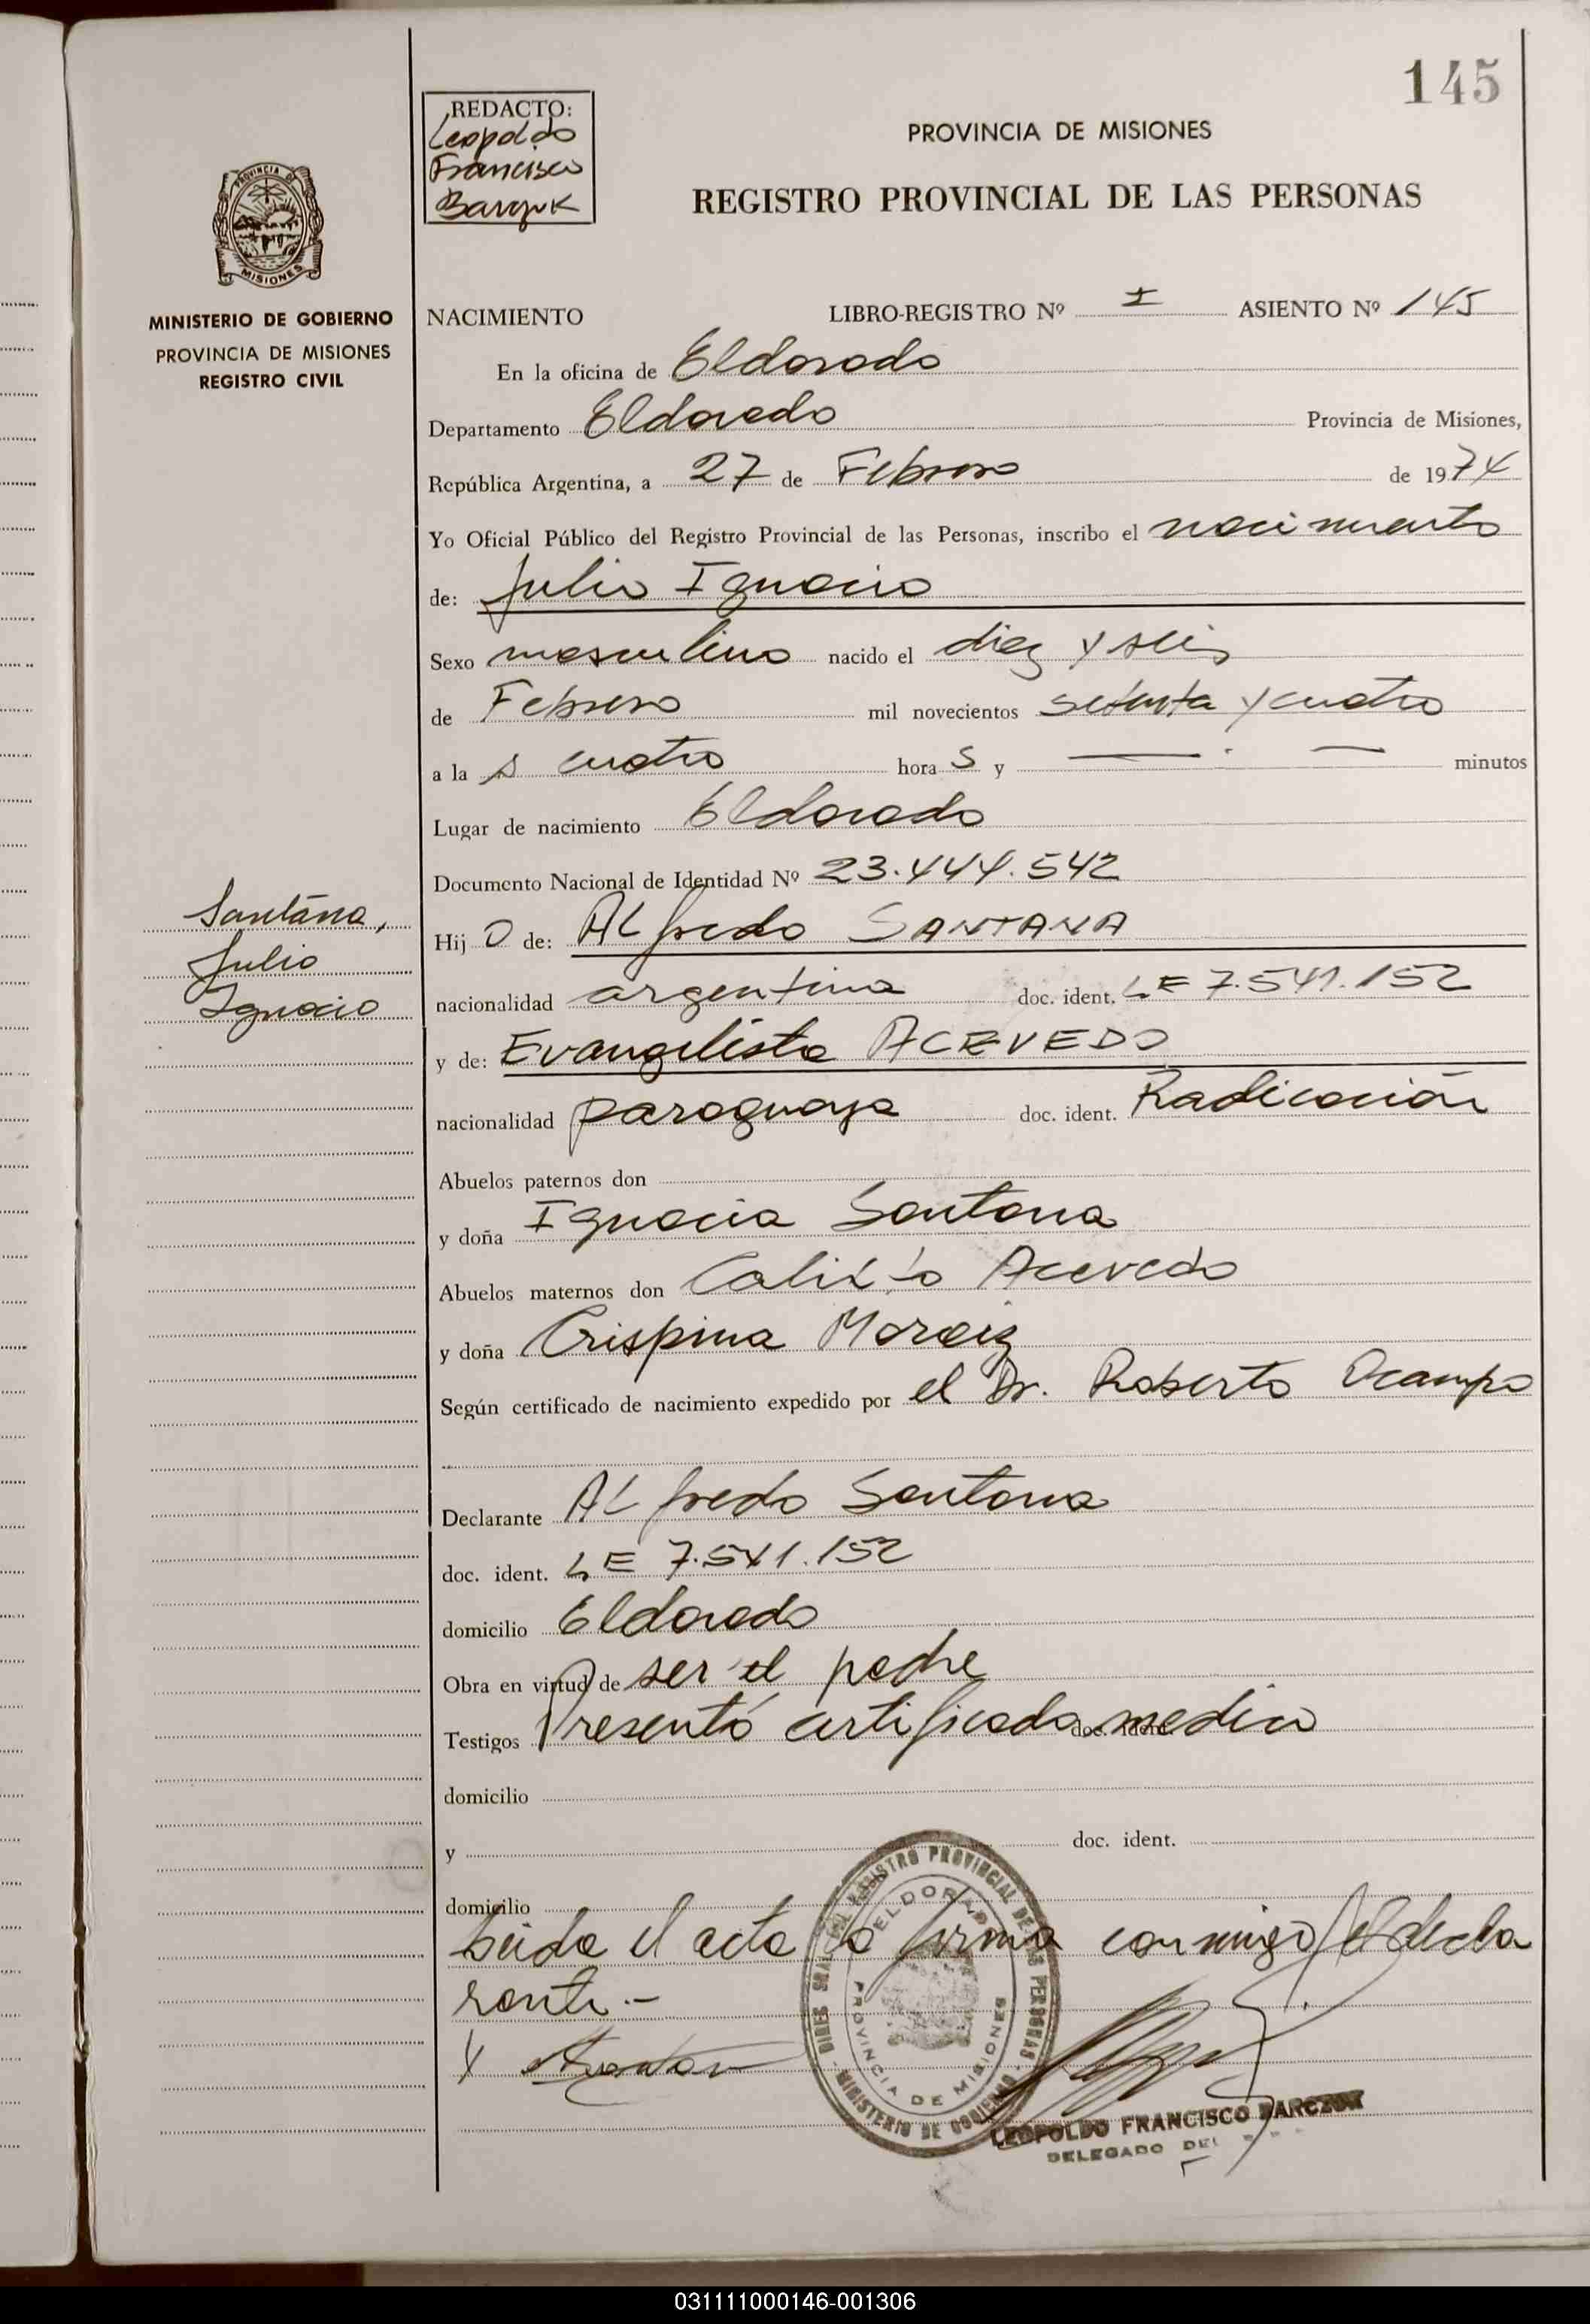 145
REDACTO:
Leopoldo
Francisco
PROVINCIA DE MISIONES
REGISTRO PROVINCIAL DE LAS PERSONAS
PROVINCIA DE
MISIONES
MINISTERIO DE GOBIERNO
PROVINCIA DE MISIONES
REGISTRO CIVIL
NACIMIENTO LIBRO-REGISTRO Nº I ASIENTO Nº 145
En la oficina de Eldorado
Departamento Eldorado Provincia de Misiones,
República Argentina, a 27 de Febrero de 1974
Yo Oficial Público del Registro Provincial de las Personas, inscribo el nacimiento
de: Julio Ignacio
Sexo masculino nacido el diez y seis
de Febrero mil novecientos setenta y cuatro
a la s cuatro hora s y — . — minutos
Lugar de nacimiento Eldorado
Documento Nacional de Identidad Nº 23.444.542
Santana,
Julio
Ignacio
Hij o de: Alfredo SANTANA
nacionalidad argentina doc. ident. LE 7.541.152
y de: Evangelista ACEVEDO
nacionalidad paraguaya doc. ident. Radicación
Abuelos paternos don
y doña Ignacia Santana
Abuelos maternos don Calixto Acevedo
y doña Crispina
Según certificado de nacimiento expedido por el Dr. Roberto Ocampo
Declarante Alfredo Santana
doc. ident. LE 7.541.152
domicilio Eldorado
Obra en virtud de ser el padre
Testigos Presentó certificado medico doc. ident.
domicilio
y doc. ident.
domicilio
Leida el acta la firma conmigo el decla
rante.-
DIREC. GRAL. DEL REGISTRO PROVINCIAL DE LAS PERSONAS - MINISTERIO DE GOBIERNO -
ELDORADO
PROVINCIA DE MISIONES
LEOPOLDO FRANCISCO BARCZUK
DELEGADO DEL
031111000146-001306